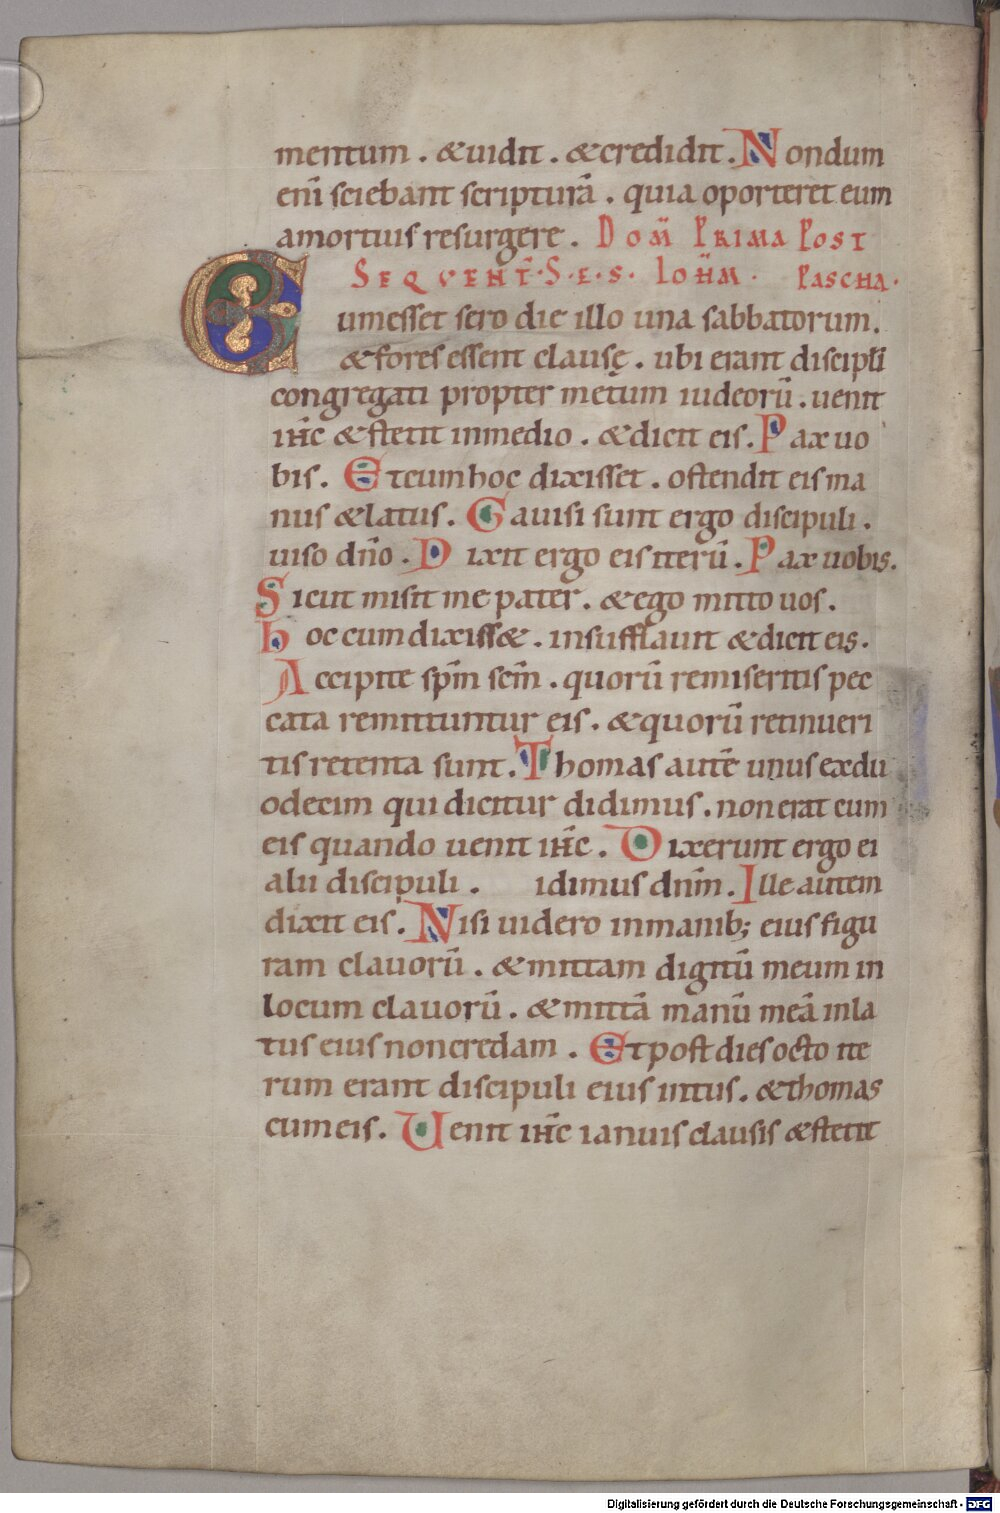 mentum . & uidit . & credidit . Nondum
enī sciebant scripturā . quia oporteret eum
amortuis resurgere . DOM̄ PRIMA POST
SEQVENT̄ . S . E . S . IOH̄M . PASCHA .
Cumesset sero die illo una sabbatorum .
& fores essent clausę . ubi erant discipli
congregati propter metum iudeorū . uenit
ih̄c & stetit inmedio . & dicit eis . Pax uo
bis . Etcumhoc dixisset . ostendit eis ma
nus & latus . Gauisi sunt ergo discipuli .
uiso dn̄o . Dixit ergo eis iterū . Pax uobis .
Sicut misit me pater . & ego mitto uos .
hoc cum dixiss& . insufflauit & dicit eis .
Accipite sp̄m sc̄m . quorū remiseritis pec
cata remittuntur eis . & quorū retinueri
tis retenta sunt . Thomas autē unus exdu
odecim qui dicitur didimus . non erat cum
eis quando uenit ih̄c . Dixerunt ergo ei
alii discipuli . idimus dn̄m . Ille autem
dixit eis . Nisi uidero inmanib; eius figu
ram clauorū . & mittam digitū meum in
locum clauorū . & mittā manū meā inla
tus eius non credam . Et post dies octo ite
rum erant discipuli eius intus . & thomas
cum eis . Uenit ih̄c ianuis clausis & stetit
Digitalisierung gefördert durch die Deutsche Forschungsgemeinschaft - DFG